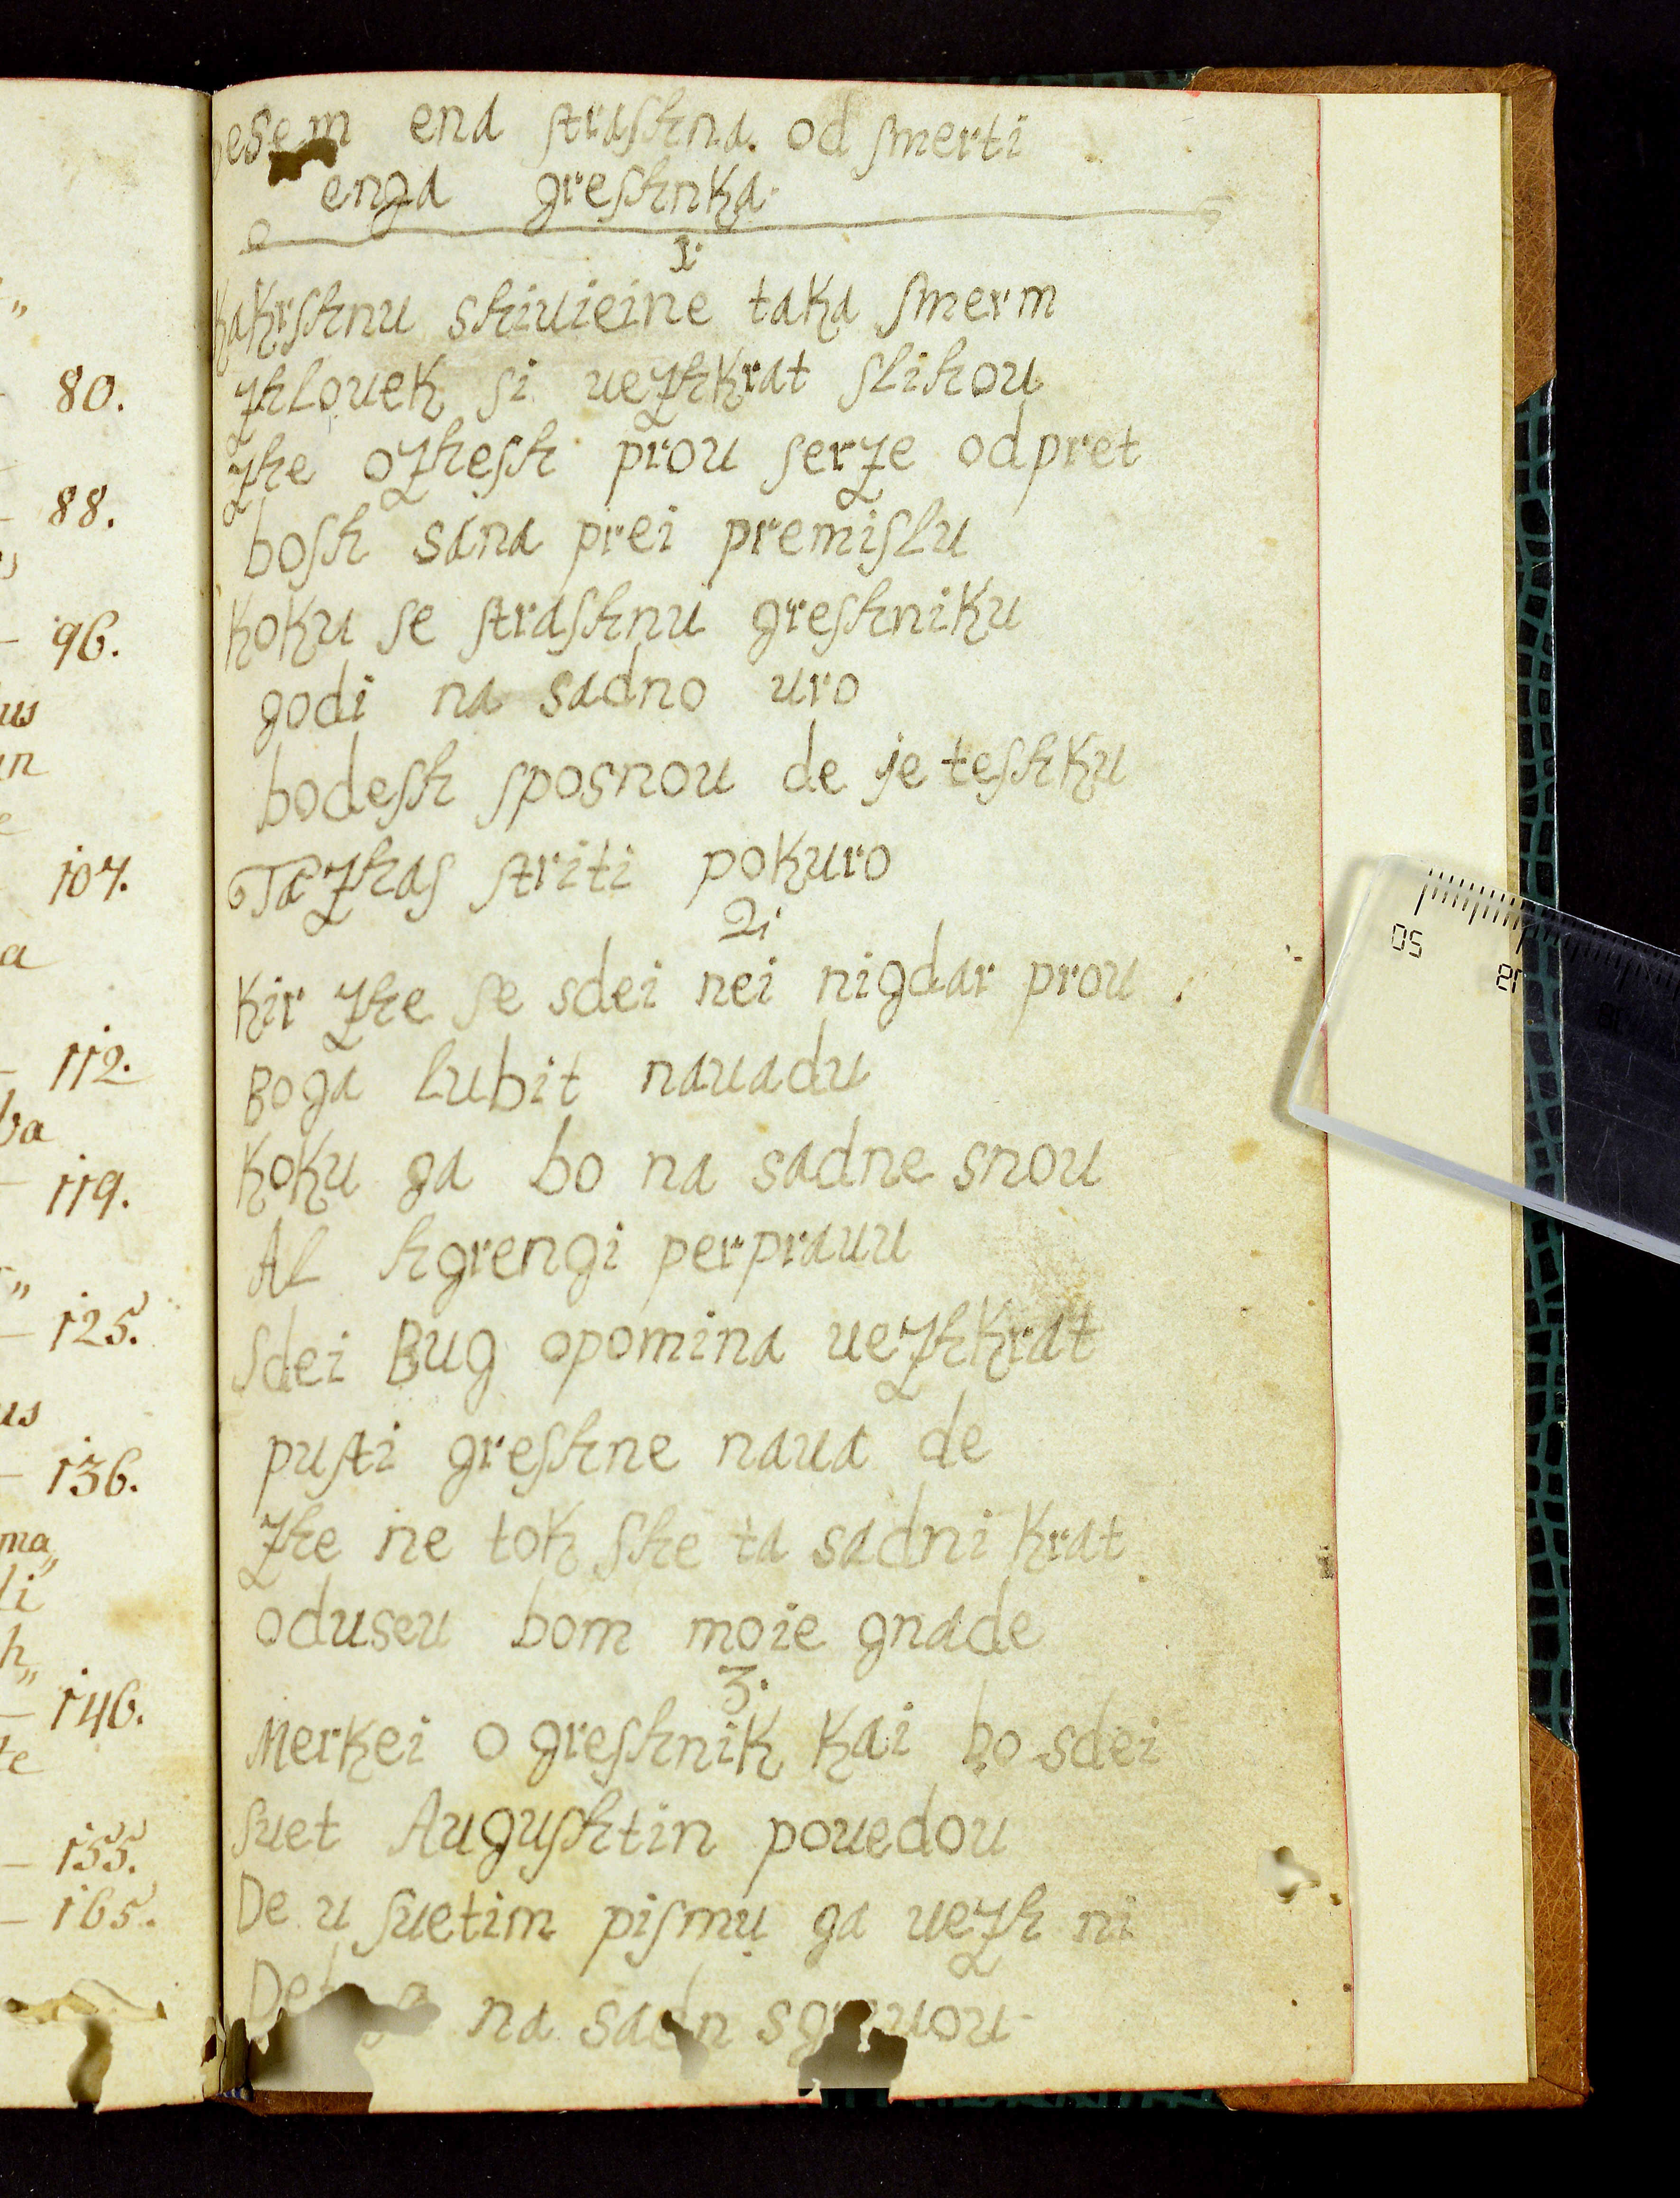 80.
88.
96.
us
in
107.
a
112.
119.
125.
us
136.
ma„
li
h„
146.
te
155.
165.
pesem ena ſtraſhna. od ſmerti
enga greſhnka.
1.
Kakrſhnu shiuieine taka ſmerm
zhlouek ſi uezhkrat ſlihou
zhe ozheſh prou ſerze odpret
boſh sana prei premiſlu
Koku ſe ſtraſhnu greſhniku
godi na sadno uro
bodeſh ſposnou de je teſhku
Tazhas ſtriti pokuro
2.
Kir zhe ſe sdei nei nigdar prou
Boga lubit nauadu
Koku ga bo na sadne snou
Al hgrengi perprauu
Sdei Bug opomina uezhkrat
puſti greſhne naua de
zhe ne tok ſhe ta sadni krat
oduseu bom moie gnade
3.
Merkei o greſhnik kai bo sdei
ſuet Auguſhtin pouedou
De u ſuetim piſmu ga uezh ni
na sadn